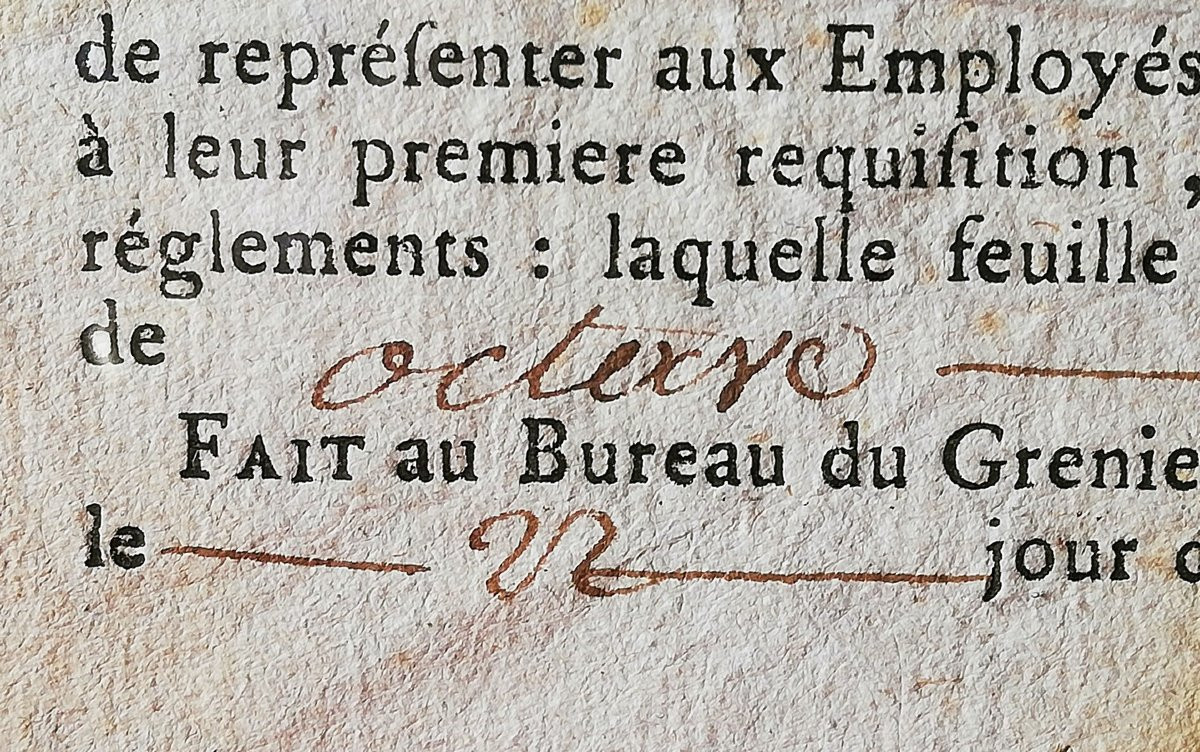 de repréſenter aux Employés
à leur premiere requiſition ,
réglements : laquelle feuille
de octavo
FAIT au Bureau du Grenie
le 22 jour